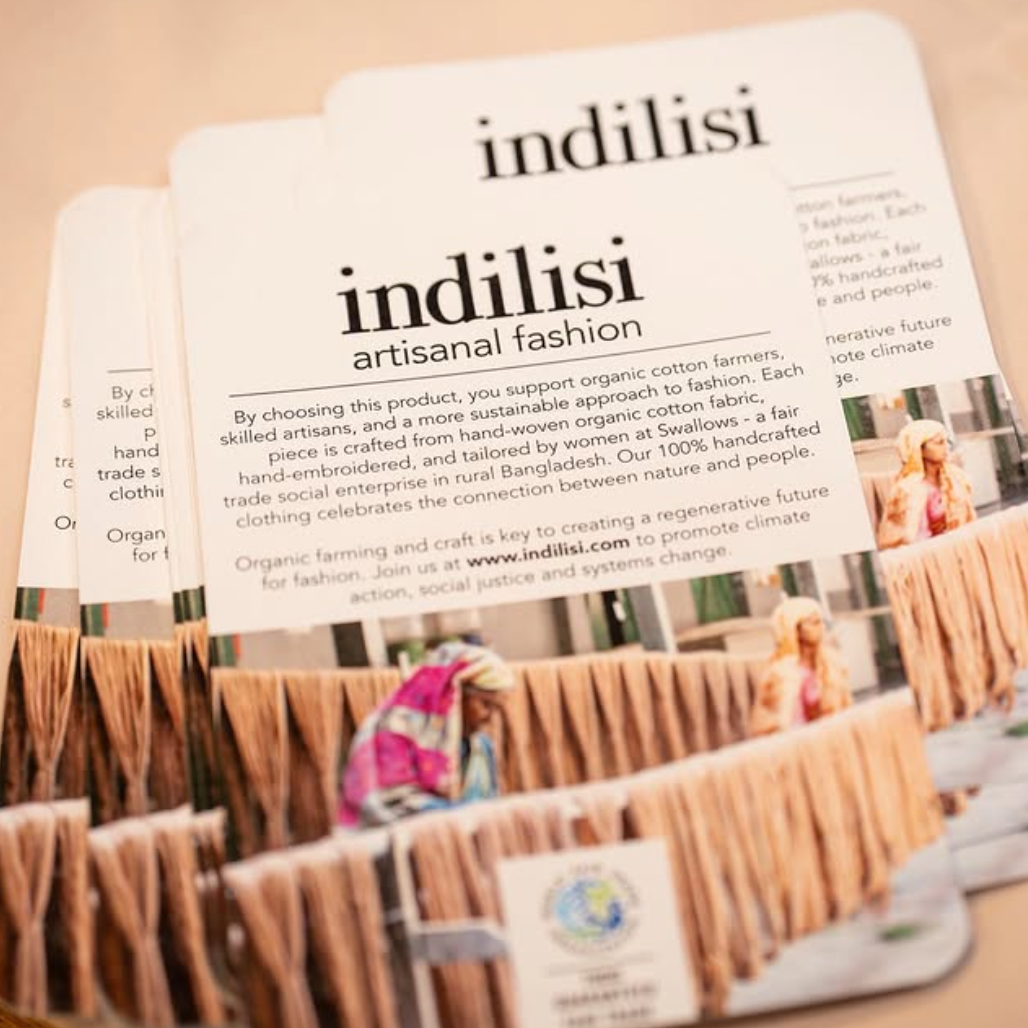 indilisi
tton farmers,
fashion. Each
on fabric,
allows - a fair
% handcrafted
e and people.
nerative future
ote climate
ge.
indilisi
artisanal fashion
By choosing this product, you support organic cotton farmers,
skilled artisans, and a more sustainable approach to fashion. Each
piece is crafted from hand-woven organic cotton fabric,
hand-embroidered, and tailored by women at Swallows - a fair
trade social enterprise in rural Bangladesh. Our 100% handcrafted
clothing celebrates the connection between nature and people.
Organic farming and craft is key to creating a regenerative future
for fashion. Join us at www.indilisi.com to promote climate
action, social justice and systems change.
By ch
skilled
p
hand
trade s
clothi
Organ
for f
s
tra
c
Or